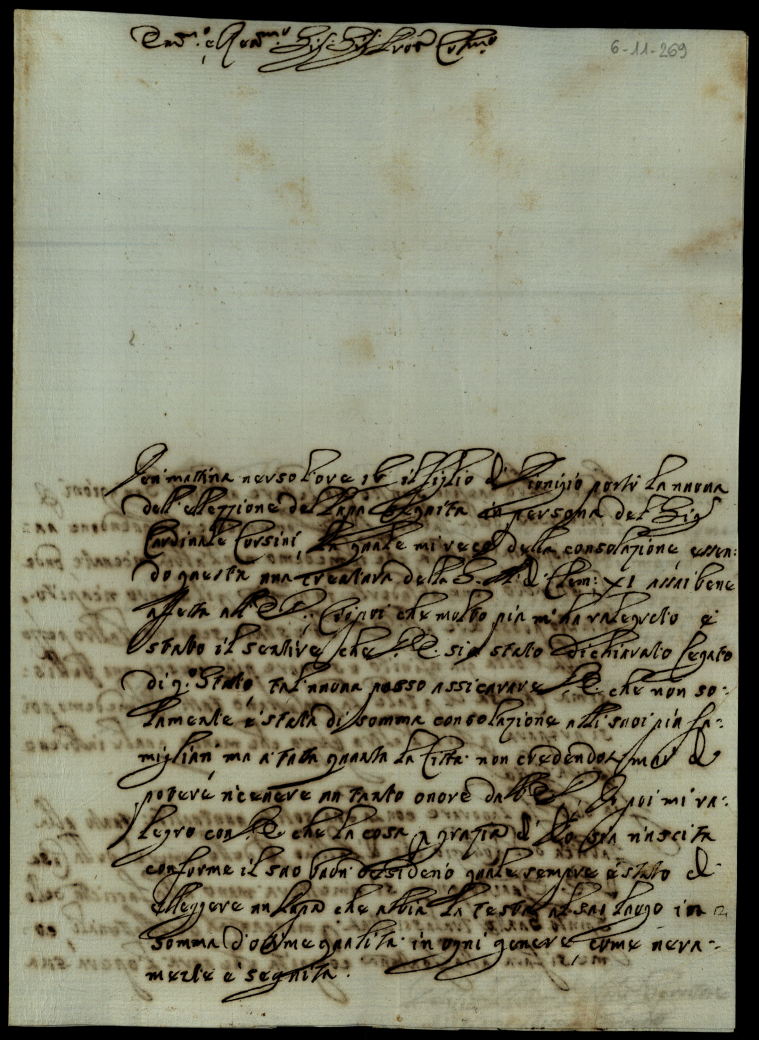 Em.mo e Rev.mo Sig. Sig. Pron Col.mo
6-11-269
Jeri mattina verso l'ore 16 il figlio di Dionigio portò la nuova
dell'ellezzione del Papa seguita in persona del Sig.r
Cardinale Corsini, la quale mi recò della consolazione, essen:
do questa una creatura della S. M. di Clem: XI assai bene
affetta all'E. V. Ciò poi che molto più m'ha ralegreto è
stato il sentire, che V. E. sia stato dichiarato Legato
di q.o Stato tal nuova posso assicurare V. E. che non so:
lamente è stata di somma consolazione alli suoi più fa:
migliari ma a tutta quanta la Città non credendosi mai di
potere ricevere un tanto onore dall'E. V. Io poi mi ra:
legro con V. E. che la cosa p grazia di Dio sia riuscita
conforme il suo buon desiderio quale sempre è stato di
elleggere un Papa che abbia la testa al suo luogo in
somma d'ottime qualità in ogni genere come vera:
mente è seguita.